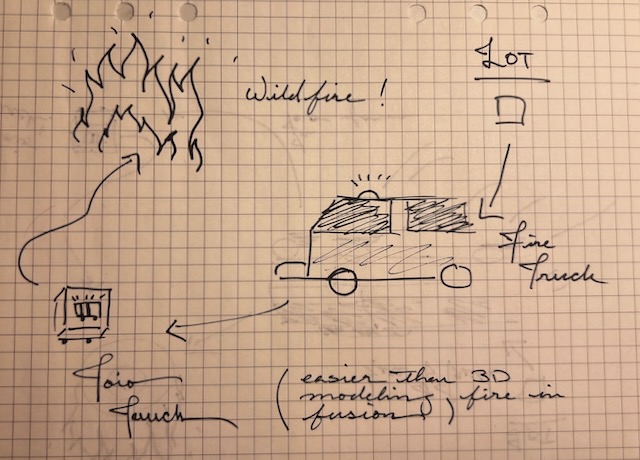 Wildfire !
IOT
Fire
Truck
Toio
Truck
(easier than 3D
modeling fire in
fusion)